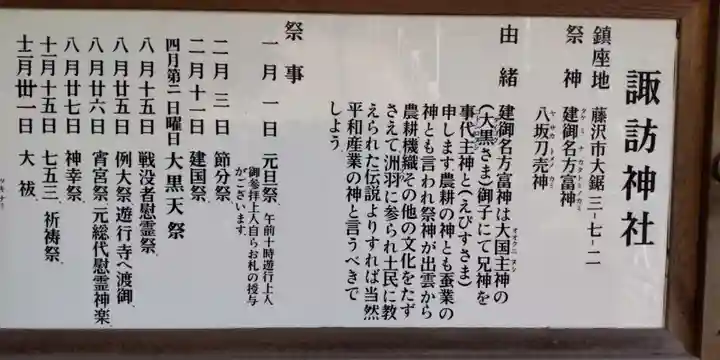 諏訪神社
鎮座地 藤沢市大鋸三ー七ー二
祭神 建御名方富神
タケミナカタトミノカミ
八坂刀売神
ヤサカトメノカミ
由緒 建御名方富神は大国主神の
オオクニヌシ
(大黒さま)御子にて兄神を
事代主神と(えびすさま)
申します農耕の神とも蚕業の
神とも言われ祭神が出雲から
農耕機織その他の文化をたず
さえて洲羽に参られ土民に教
えられた伝説よりすれば当然
平和産業の神と言うべきで
しょう
祭事
一月一日 元旦祭 午前十時遊行上人
御参拝上人自らお札の授与
がございます
二月三日 節分祭
二月十一日 建国祭
四月第二日曜日 大黒天祭
八月十五日 戦没者慰霊祭
八月廿五日 例大祭遊行寺へ渡御
八月廿六日 宵宮祭元総代慰霊神楽
八月廿七日 神幸祭
十一月十五日 七五三祈祷祭
十二月卅一日 大祓